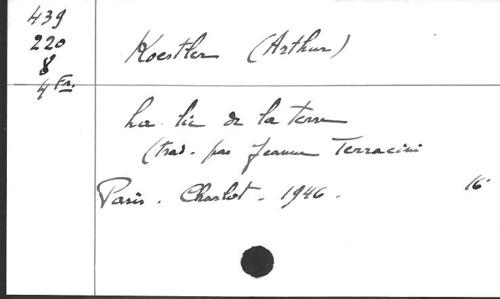 439
220
8
4 Fr.
Koestler (Arthur)
La lie de la terre
(trad. par Jeanne Terracini
Paris. Charlot. 1946.
16°